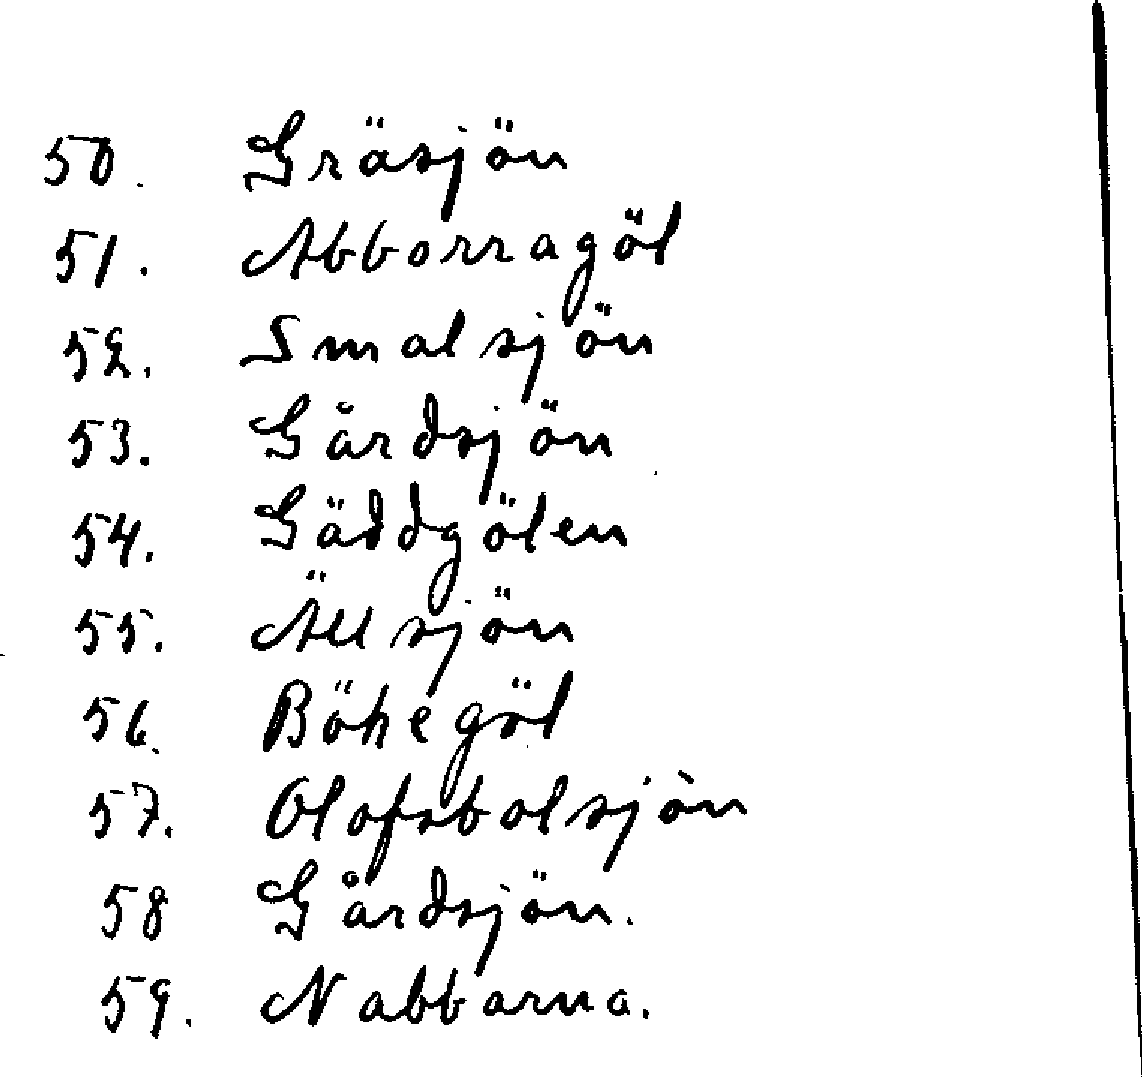 50. Gräsjön
51. Abborragöl
52. Smalsjön
53. Gårdsjön
54. Gäddgölen
55. Ällsjön
56. Bökegöl
57. Olofsbolsjön
58 Gårdsjön.
59. Nabbarna.